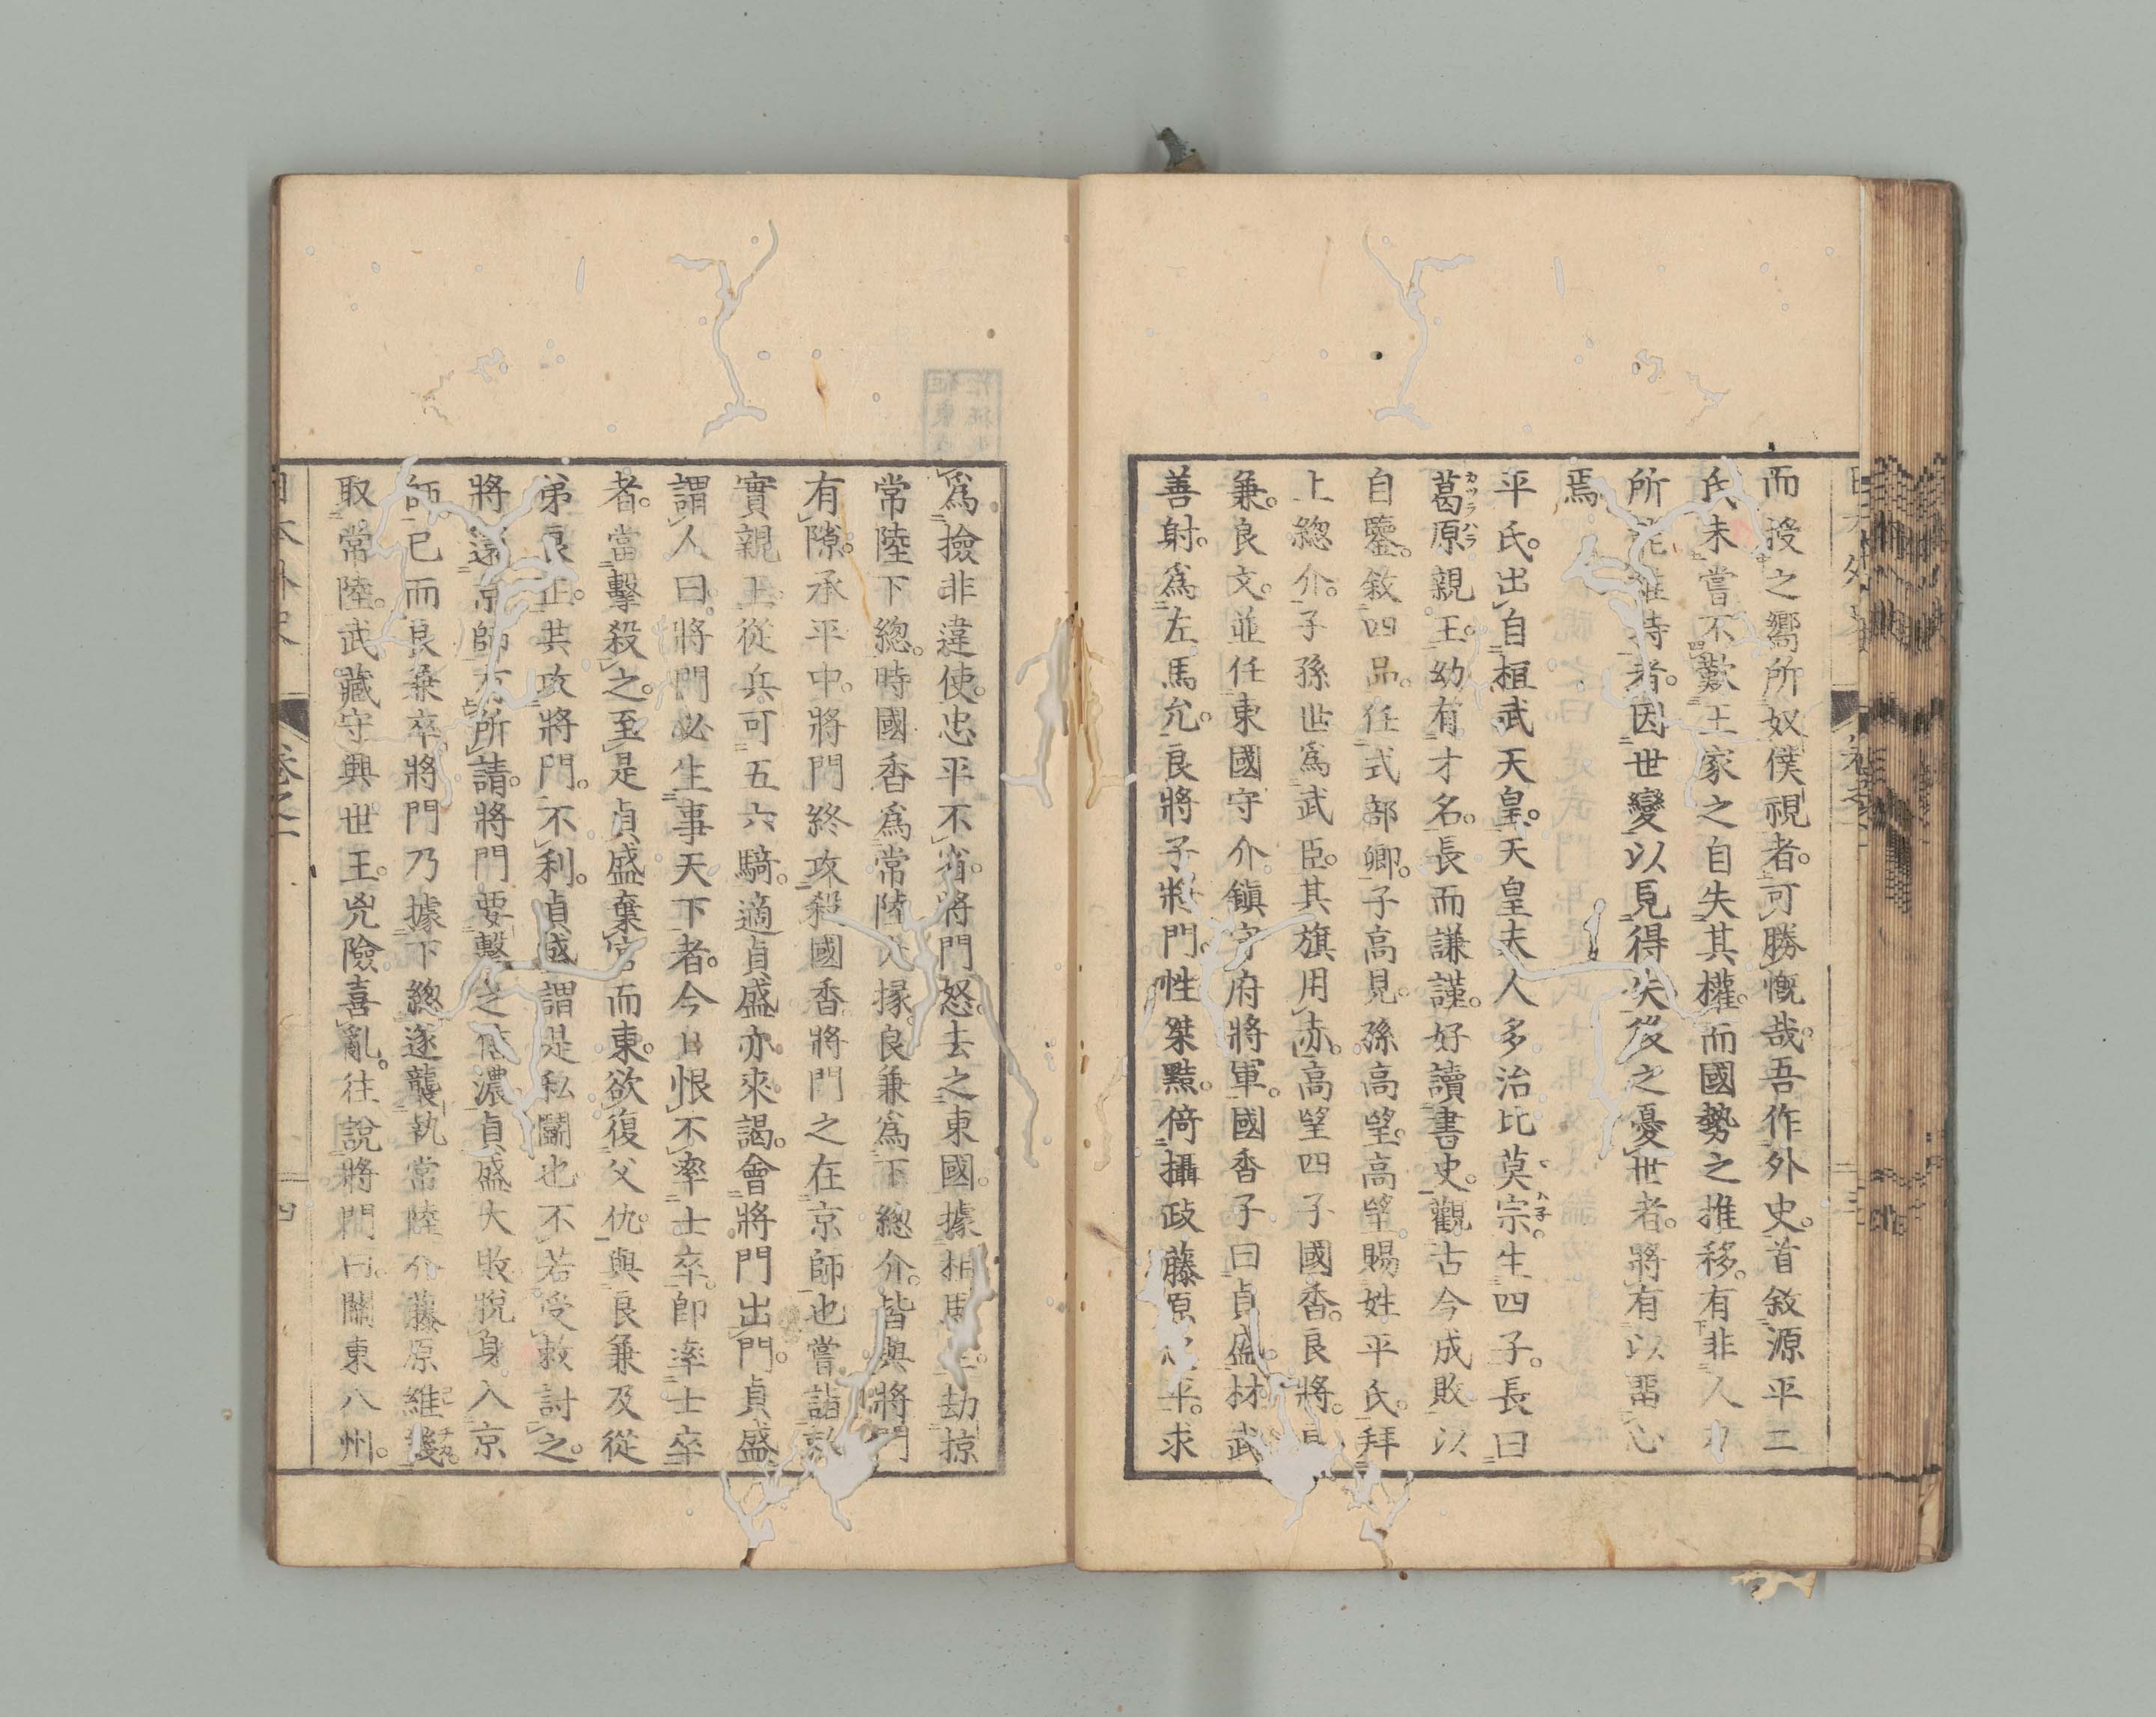 而授之嚮所奴僕視者。可勝慨哉。吾作外史。首敘源平二
氏。未嘗不歎王家之自失其權。而國勢之推移。有非人力
所 維持者。因世變以見得失。後之憂世者。將有以留心
焉。
平氏。出自桓武天皇。天皇夫人多治比莫宗。生四子。長曰
葛原親王。幼有才名。長而謙謹。好讀書史。觀古今成敗以
自鑒。敘四品。任式部卿。子高見。孫高望。高望。賜姓平氏。拜
上總介。子孫世爲武臣。其旗用赤。高望四子國香。良將。良
兼。良文。並任東國守介。鎭守府將軍。國香子曰貞盛。材武
善射。爲左馬允。良將子將門。性桀黠。倚攝政藤原忠平。求
爲撿非違使。忠平不省。將門怒。去之東國。據相馬 。劫掠
常陸下總。時國香爲常陸大掾。良兼爲下總介。皆與將門
有隙。承平中。將門終攻殺國香。將門之在京師也。嘗詣敦
實親王。從兵可五六騎。適貞盛亦來謁。會將門出門。貞盛
謂人曰。將門必生事天下者。今日恨不率士卒。卽率士卒
者。當擊殺之。至是貞盛棄官而東。欲復父仇。與良兼及從
弟良正。共攻將門。不利。貞盛謂是私鬭也。不若受敕討之。
將還京師有所請。將門要擊之信濃。貞盛大敗。脫身入京
師。已而良兼卒。將門乃據下總。遂襲執常陸介藤原維幾。
取常陸。武藏守興世王。兇險喜亂。往說將門曰。關東八州。
日本外史 卷之一 四